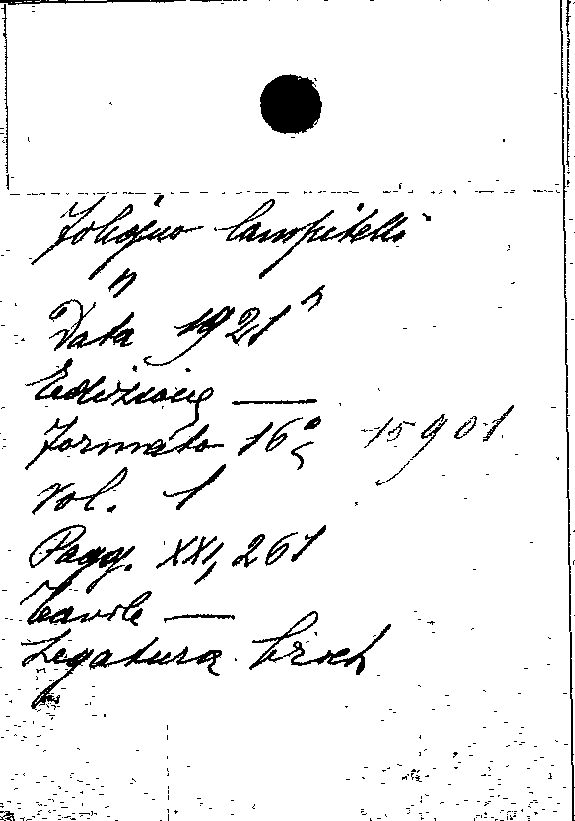 Foligno Campitelli
" "
Data 1921
Edizione —
Formato 16° 15901
Vol. 1
Pagg. XXI, 261
Tavole —
Legatura broch